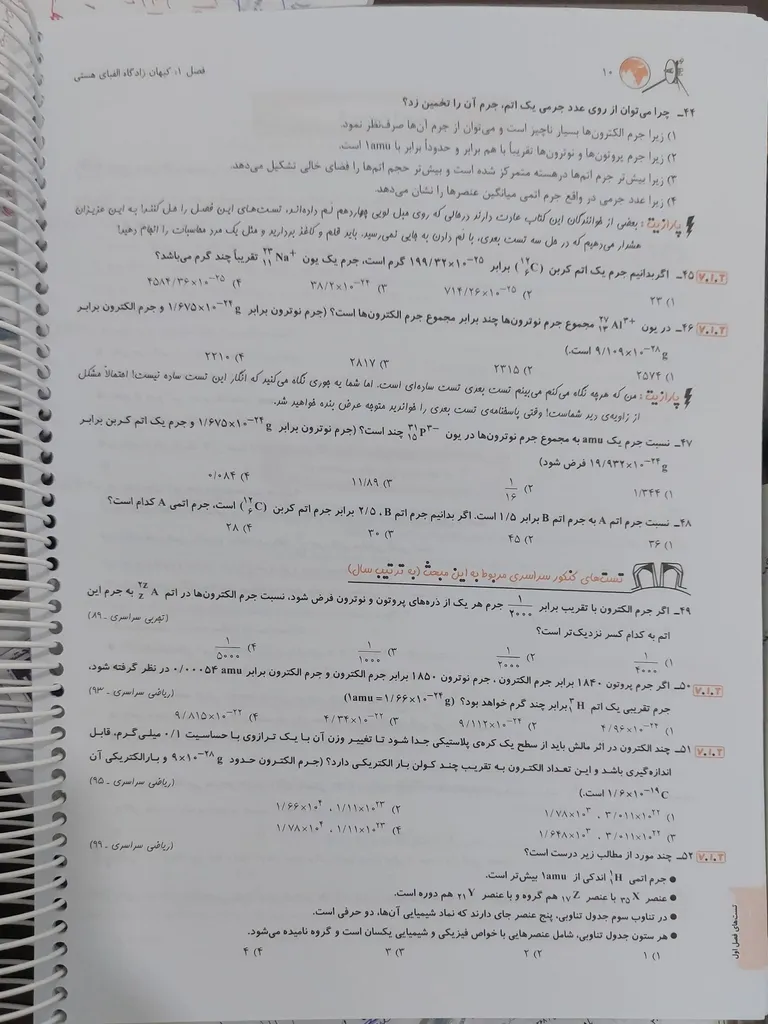 ۱۰
فصل ۱: کیهان زادگاه الفبای هستی
۴۴- چرا می‌توان از روی عدد جرمی یک اتم، جرم آن را تخمین زد؟
۱) زیرا جرم الکترون‌ها بسیار ناچیز است و می‌توان از جرم آن‌ها صرف‌نظر نمود.
۲) زیرا جرم پروتون‌ها و نوترون‌ها تقریباً با هم برابر و حدوداً برابر با ۱amu است.
۳) زیرا بیش‌تر جرم اتم‌ها درهسته متمرکز شده است و بیش‌تر حجم اتم‌ها را فضای خالی تشکیل می‌دهد.
۴) زیرا عدد جرمی در واقع جرم اتمی میانگین عنصرها را نشان می‌دهد.
پارازیت: بعضی از خوانندگان این کتاب عادت دارند درحالی‌که روی مبل لویی چهاردهم لم داده‌اند، تست‌های این فصل را حل کنند! به این عزیزان
هشدار می‌دهیم که در حل سه تست بعدی، با لم دادن به جایی نمی‌رسید. باید قلم و کاغذ بردارید و مثل یک مرد محاسبات را انجام دهید!
۷.۱.۲ ۴۵- اگر بدانیم جرم یک اتم کربن (¹²₆C) برابر ۱۹۹/۳۲×۱۰⁻²⁵ گرم است، جرم یک یون ²³₁₁Na⁺ تقریباً چند گرم می‌باشد؟
۱) ۲۳ ۲) ۷۱۴/۲۶×۱۰⁻²⁵ ۳) ۳۸/۲×۱۰⁻²⁴ ۴) ۴۵۸۴/۳۶×۱۰⁻²⁵
۷.۱.۲ ۴۶- در یون ²⁷₁₃Al³⁺ مجموع جرم نوترون‌ها چند برابر مجموع جرم الکترون‌ها است؟ (جرم نوترون برابر ۱/۶۷۵×۱۰⁻²⁴ g و جرم الکترون برابر
۹/۱۰۹×۱۰⁻²⁸ g است.)
۱) ۲۵۷۴ ۲) ۲۳۱۵ ۳) ۲۸۱۷ ۴) ۲۲۱۰
پارازیت: من که هرچه نگاه می‌کنم می‌بینم تست بعدی تست ساده‌ای است. اما شما یه جوری نگاه می‌کنید که انگار این تست ساده نیست! احتمالاً مشکل
از زاویه‌ی دید شماست! وقتی پاسخنامه‌ی تست بعدی را خواندید متوجه عرض بنده خواهید شد.
۴۷- نسبت جرم یک amu به مجموع جرم نوترون‌ها در یون ³¹₁₅P³⁻ چند است؟ (جرم نوترون برابر ۱/۶۷۵×۱۰⁻²⁴ g و جرم یک اتم کربن برابر
۱۹/۹۳۲×۱۰⁻²⁴ g فرض شود)
۱) ۱/۳۴۴ ۲) ۱/۱۶ ۳) ۱۱/۸۹ ۴) ۰/۰۸۴
۴۸- نسبت جرم اتم A به جرم اتم B برابر ۱/۵ است. اگر بدانیم جرم اتم B، ۲/۵ برابر جرم اتم کربن (¹²₆C) است، جرم اتمی A کدام است؟
۱) ۳۶ ۲) ۴۵ ۳) ۳۰ ۴) ۲۸
تست‌های کنکور سراسری مربوط به این مبحث (به ترتیب سال)
۴۹- اگر جرم الکترون با تقریب برابر ۱/۲۰۰۰ جرم هر یک از ذره‌های پروتون و نوترون فرض شود، نسبت جرم الکترون‌ها در اتم ²ᶻ_ZA به جرم این
اتم به کدام کسر نزدیک‌تر است؟ (تجربی سراسری - ۸۹)
۱) ۱/۴۰۰۰ ۲) ۱/۲۰۰۰ ۳) ۱/۱۰۰۰ ۴) ۱/۵۰۰۰
۷.۱.۲ ۵۰- اگر جرم پروتون ۱۸۴۰ برابر جرم الکترون، جرم نوترون ۱۸۵۰ برابر جرم الکترون و جرم الکترون برابر ۰/۰۰۰۵۴ amu در نظر گرفته شود،
جرم تقریبی یک اتم ³₁H برابر چند گرم خواهد بود؟ (۱amu = ۱/۶۶×۱۰⁻²⁴ g) (ریاضی سراسری - ۹۳)
۱) ۴/۹۶×۱۰⁻²⁴ ۲) ۹/۱۱۲×۱۰⁻²⁴ ۳) ۴/۳۴×۱۰⁻²² ۴) ۹/۸۱۵×۱۰⁻²²
۷.۱.۲ ۵۱- چند الکترون در اثر مالش باید از سطح یک کره‌ی پلاستیکی جدا شود تا تغییر وزن آن با یک ترازوی با حساسیت ۰/۱ میلی‌گرم، قابل
اندازه‌گیری باشد و این تعداد الکترون به تقریب چند کولن بار الکتریکی دارد؟ (جرم الکترون حدود ۹×۱۰⁻²⁸ g و بارالکتریکی آن
۱/۶×۱۰⁻¹⁹ C است.) (ریاضی سراسری - ۹۵)
۱) ۳/۰۱۱×۱۰²² ، ۱/۷۸×۱۰³ ۲) ۱/۱۱×۱۰²³ ، ۱/۶۶×۱۰⁴
۳) ۳/۰۱۱×۱۰²² ، ۱/۶۴۸×۱۰³ ۴) ۱/۱۱×۱۰²³ ، ۱/۷۸×۱۰⁴
۷.۱.۲ ۵۲- چند مورد از مطالب زیر درست است؟ (ریاضی سراسری - ۹۹)
● جرم اتمی ¹₁H اندکی از ۱amu بیش‌تر است.
● عنصر ₃₅X با عنصر ₁₇Z هم گروه و با عنصر ₂₁Y هم دوره است.
● در تناوب سوم جدول تناوبی، پنج عنصر جای دارند که نماد شیمیایی آن‌ها، دو حرفی است.
● هر ستون جدول تناوبی، شامل عنصرهایی با خواص فیزیکی و شیمیایی یکسان است و گروه نامیده می‌شود.
۱) ۱ ۲) ۲ ۳) ۳ ۴) ۴
تست‌های فصل اول